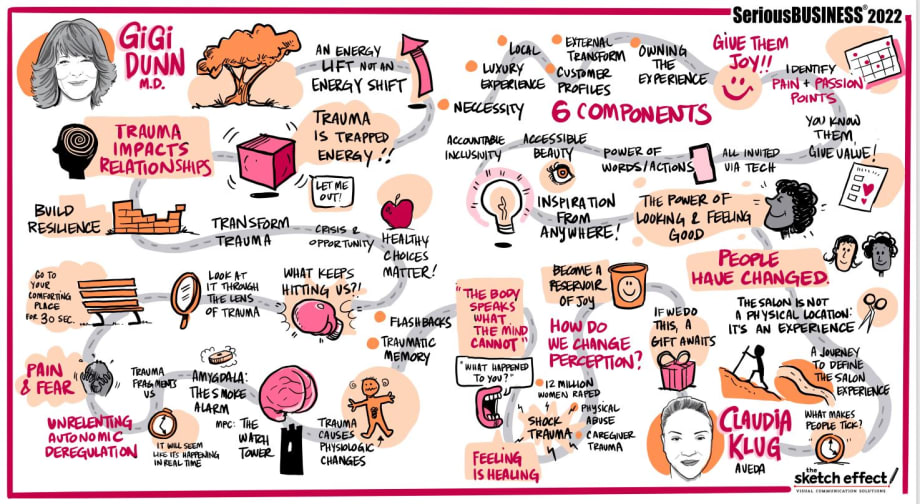 SeriousBUSINESS® 2022
GiGi
DUNN
M.D.
AN ENERGY
LIFT NOT AN
ENERGY SHIFT
TRAUMA
IMPACTS
RELATIONSHIPS
TRAUMA
IS TRAPPED
ENERGY!!
LET ME
OUT!
BUILD
RESILIENCE
TRANSFORM
TRAUMA
CRISIS &
OPPORTUNITY
HEALTHY
CHOICES
MATTER!
GO TO
YOUR
COMFORTING
PLACE
FOR 30 SEC.
LOOK AT
IT THROUGH
THE LENS
OF TRAUMA
WHAT KEEPS
HITTING US?!
FLASHBACKS
TRAUMATIC
MEMORY
PAIN
& FEAR
TRAUMA
FRAGMENTS
US
AMYGDALA:
THE SMOKE
ALARM
MPC: THE
WATCH
TOWER
UNRELENTING
AUTONOMIC
DEREGULATION
IT WILL SEEM
LIKE IT'S HAPPENING
IN REAL TIME
TRAUMA
CAUSES
PHYSIOLOGIC
CHANGES
"THE BODY
SPEAKS
WHAT
THE MIND
CANNOT"
"WHAT HAPPENED
TO YOU?"
12 MILLION
WOMEN RAPED
SHOCK
TRAUMA
PHYSICAL
ABUSE
CAREGIVER
TRAUMA
FEELING
IS HEALING
HOW DO
WE CHANGE
PERCEPTION?
BECOME A
RESERVOIR
OF JOY
IF WE DO
THIS, A
GIFT AWAITS
LOCAL
LUXURY
EXPERIENCE
NECCESSITY
EXTERNAL
TRANSFORM
CUSTOMER
PROFILES
OWNING
THE
EXPERIENCE
6 COMPONENTS
GIVE THEM
JOY!!
IDENTIFY
PAIN + PASSION
POINTS
YOU KNOW
THEM,
GIVE VALUE!
ACCOUNTABLE
INCLUSIVITY
ACCESSIBLE
BEAUTY
POWER OF
WORDS/ACTIONS
ALL INVITED
VIA TECH
INSPIRATION
FROM
ANYWHERE!
THE POWER OF
LOOKING & FEELING
GOOD
PEOPLE
HAVE CHANGED.
THE SALON IS NOT
A PHYSICAL LOCATION:
IT'S AN EXPERIENCE
A JOURNEY
TO DEFINE
THE SALON
EXPERIENCE
WHAT MAKES
PEOPLE TICK?
CLAUDIA
KLUG
AVEDA
the
sketch effect
VISUAL COMMUNICATION SOLUTIONS